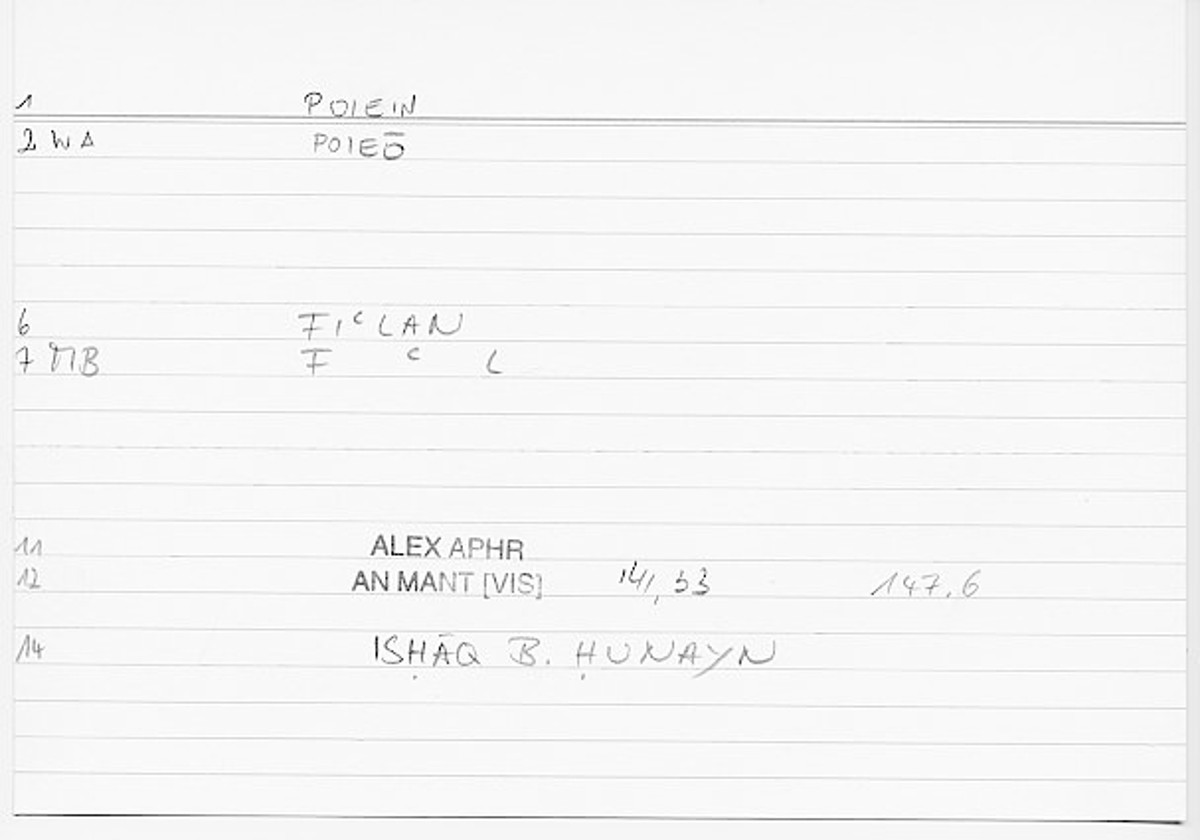 1 POIEIN
2 WA POIEŌ
6 FIᶜLAN
7 MB F ᶜ L
11 ALEX APHR
12 AN MANT [VIS] 141,33 147.6
14 ISḤĀQ B. ḤUNAYN